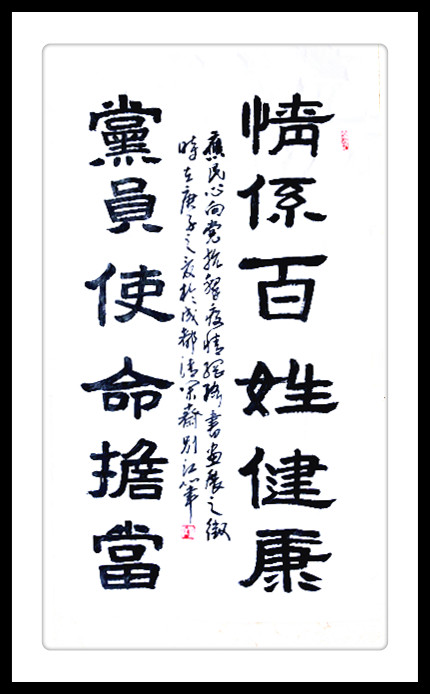 情係百姓健康
應民心向党抗擊疫情網絡書画展之徵
時在庚子之夏於成都清溪齋别江筆
黨員使命擔當